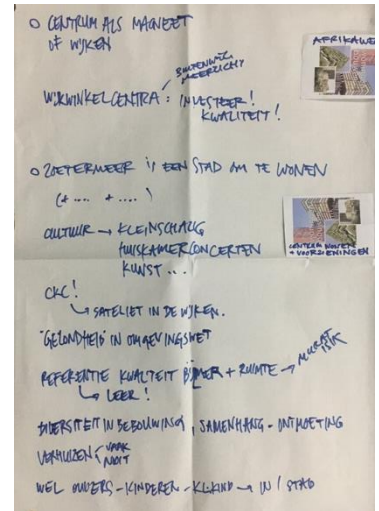 O CENTRUM ALS MAGNEET
OF WIJKEN
AFRIKAWE
BUITENWIJZ
MEERZICHT
WIJKWINKELCENTRA: INVESTEER!
KWALITEIT!
O ZOETERMEER is EEN STAD OM TE WONEN
(+ .... + .... )
CULTUUR → KLEINSCHALIG
HUISKAMERCONCERTEN
KUNST ...
CENTRUM WONEN
+ VOORZIENINGEN
CKC!
SATELIET IN DE WIJKEN.
"GEZONDHEID" IN OMGEVINGSWET
REFERENTIE KWALITEIT BIJLMER + RUIMTE → MURAT
ISIK
LEER!
DIVERSITEIT IN BEBOUWING, SAMENHANG - ONTMOETING
VERHUIZEN VAAK
NOOIT
WEL OUDERS - KINDEREN - KL.KIND → IN / STAD